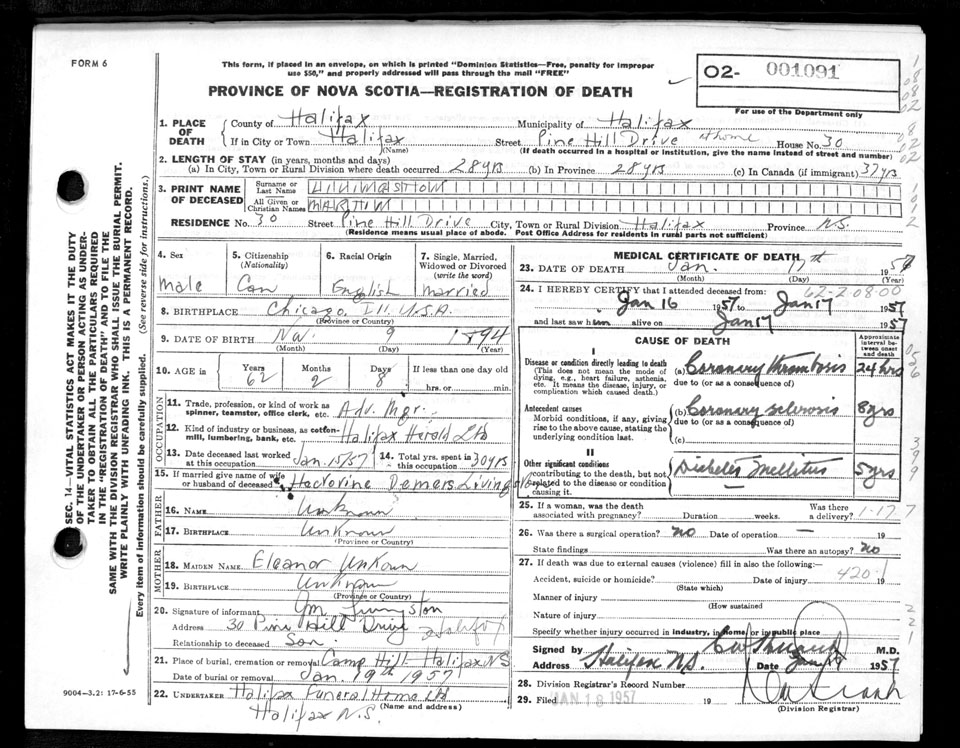 FORM 6
This form, if placed in an envelope, on which is printed "Dominion Statistics—Free, penalty for improper
use $50," and properly addressed will pass through the mail "FREE"
O2- 001091
For use of the Department only
PROVINCE OF NOVA SCOTIA—REGISTRATION OF DEATH
1. PLACE OF DEATH
County of Halifax Municipality of Halifax
If in City or Town Halifax Street Pine Hill Drive at home House No. 30
(Name) (If death occurred in a hospital or institution, give the name instead of street and number)
2. LENGTH OF STAY (in years, months and days)
(a) In City, Town or Rural Division where death occurred 28 yrs (b) In Province 28 yrs (c) In Canada (if immigrant) 37 yrs
3. PRINT NAME OF DECEASED
Surname or Last Name
All Given or Christian Names MARTIN
RESIDENCE No. 30 Street Pine Hill Drive City, Town or Rural Division Halifax Province N.S.
(Residence means usual place of abode. Post Office Address for residents in rural parts not sufficient)
4. Sex
male
5. Citizenship
(Nationality)
Can
6. Racial Origin
English
7. Single, Married,
Widowed or Divorced
(write the word)
married
8. BIRTHPLACE Chicago, Ill. U.S.A.
(Province or Country)
9. DATE OF BIRTH Nov. 9 1894
(Month) (Day) (Year)
10. AGE in
Years Months Days If less than one day
62 2 8 hrs. or min.
OCCUPATION
11. Trade, profession, or kind of work as
spinner, teamster, office clerk, etc. Adv. Mgr.
12. Kind of industry or business, as cotton-
mill, lumbering, bank, etc. Halifax Herald Ltd
13. Date deceased last worked
at this occupation Jan. 15/57
14. Total yrs. spent in
this occupation 30 yrs
15. If married give name of wife
or husband of deceased Hectorine Demers Livingston
FATHER
16. NAME Unknown
17. BIRTHPLACE Unknown
(Province or Country)
MOTHER
18. MAIDEN NAME Eleanor Unkown
19. BIRTHPLACE Unknown
(Province or Country)
20. Signature of informant Livingston
Address 30 Pine Hill Drive Halifax
Relationship to deceased Son.
21. Place of burial, cremation or removal Camp Hill Halifax NS
Date of burial or removal Jan. 19th 1957
22. UNDERTAKER Halifax Funeral Home Ltd
(Name and address)
Halifax N.S.
MEDICAL CERTIFICATE OF DEATH
23. DATE OF DEATH Jan. 17th 1957
24. I HEREBY CERTIFY that I attended deceased from:
62-2-08-00
Jan 16 1957 to Jan 17 1957
and last saw him alive on Jan 17 1957
CAUSE OF DEATH
Approximate
interval be-
tween onset
and death
I
Disease or condition directly leading to death
(This does not mean the mode of
dying, e.g., heart failure, asthenia,
etc. It means the disease, injury, or
complication which caused death.)
(a) Coronary thrombosis 24 hrs
due to (or as a consequence of)
Antecedent causes
Morbid conditions, if any, giving
rise to the above cause, stating the
underlying condition last.
(b) Coronary sclerosis 8 yrs
due to (or as a consequence of)
(c)
II
Other significant conditions
contributing to the death, but not
related to the disease or condition
causing it.
Diabetes Mellitus 5 yrs
25. If a woman, was the death Was there
associated with pregnancy? Duration weeks. a delivery? 1-17 7
26. Was there a surgical operation? no Date of operation 19
State findings Was there an autopsy? no
27. If death was due to external causes (violence) fill in also the following:—
Accident, suicide or homicide? Date of injury 19
420-1
(State which)
Manner of injury
(How sustained
Nature of injury
Specify whether injury occurred in industry, in home, or in public place
Signed by M.D.
Address Halifax N.S. Date Jan 1957
28. Division Registrar's Record Number
29. Filed JAN 18 1957 19
(Division Registrar)
SEC. 14—VITAL STATISTICS ACT MAKES IT THE DUTY
OF THE UNDERTAKER OR PERSON ACTING AS UNDER-
TAKER TO OBTAIN ALL THE PARTICULARS REQUIRED
IN THE "REGISTRATION OF DEATH" AND TO FILE THE
SAME WITH THE DIVISION REGISTRAR WHO SHALL ISSUE THE BURIAL PERMIT.
WRITE PLAINLY WITH UNFADING INK. THIS IS A PERMANENT RECORD.
Every item of information should be carefully supplied. (See reverse side for instructions.)
9004—3.2: 17-6-55